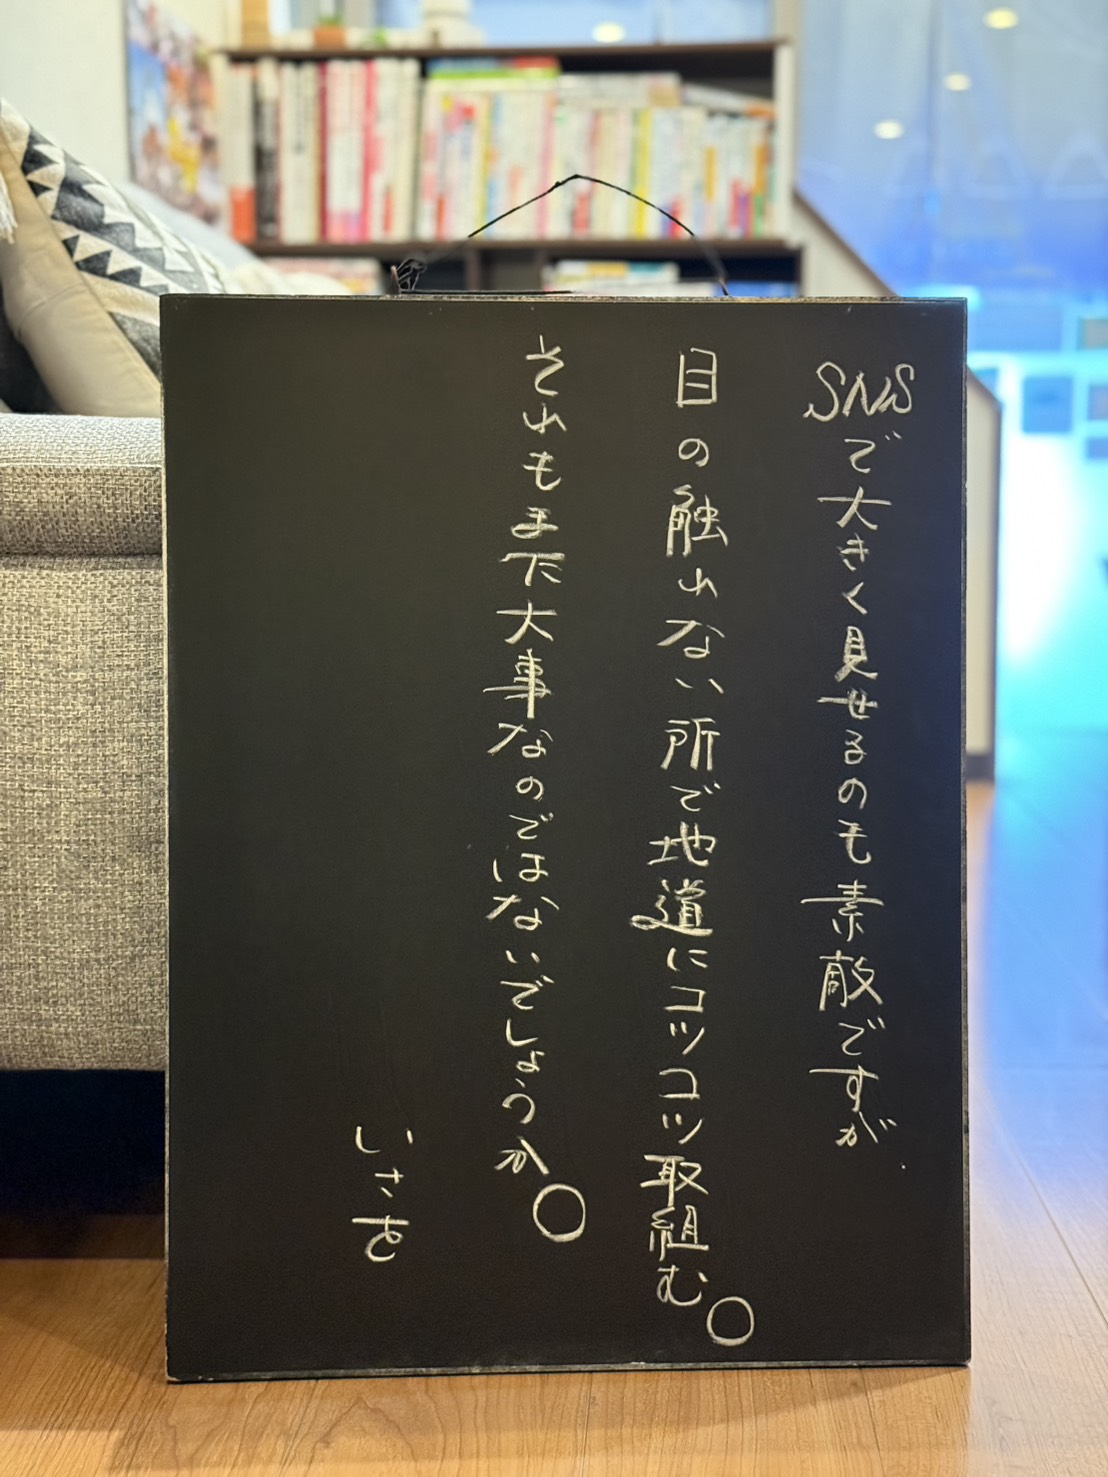 SNSで大きく見せるのも素敵ですが、
目の触れない所で地道にコツコツ取組む。
それもまた大事なのではないでしょうか。
いさを